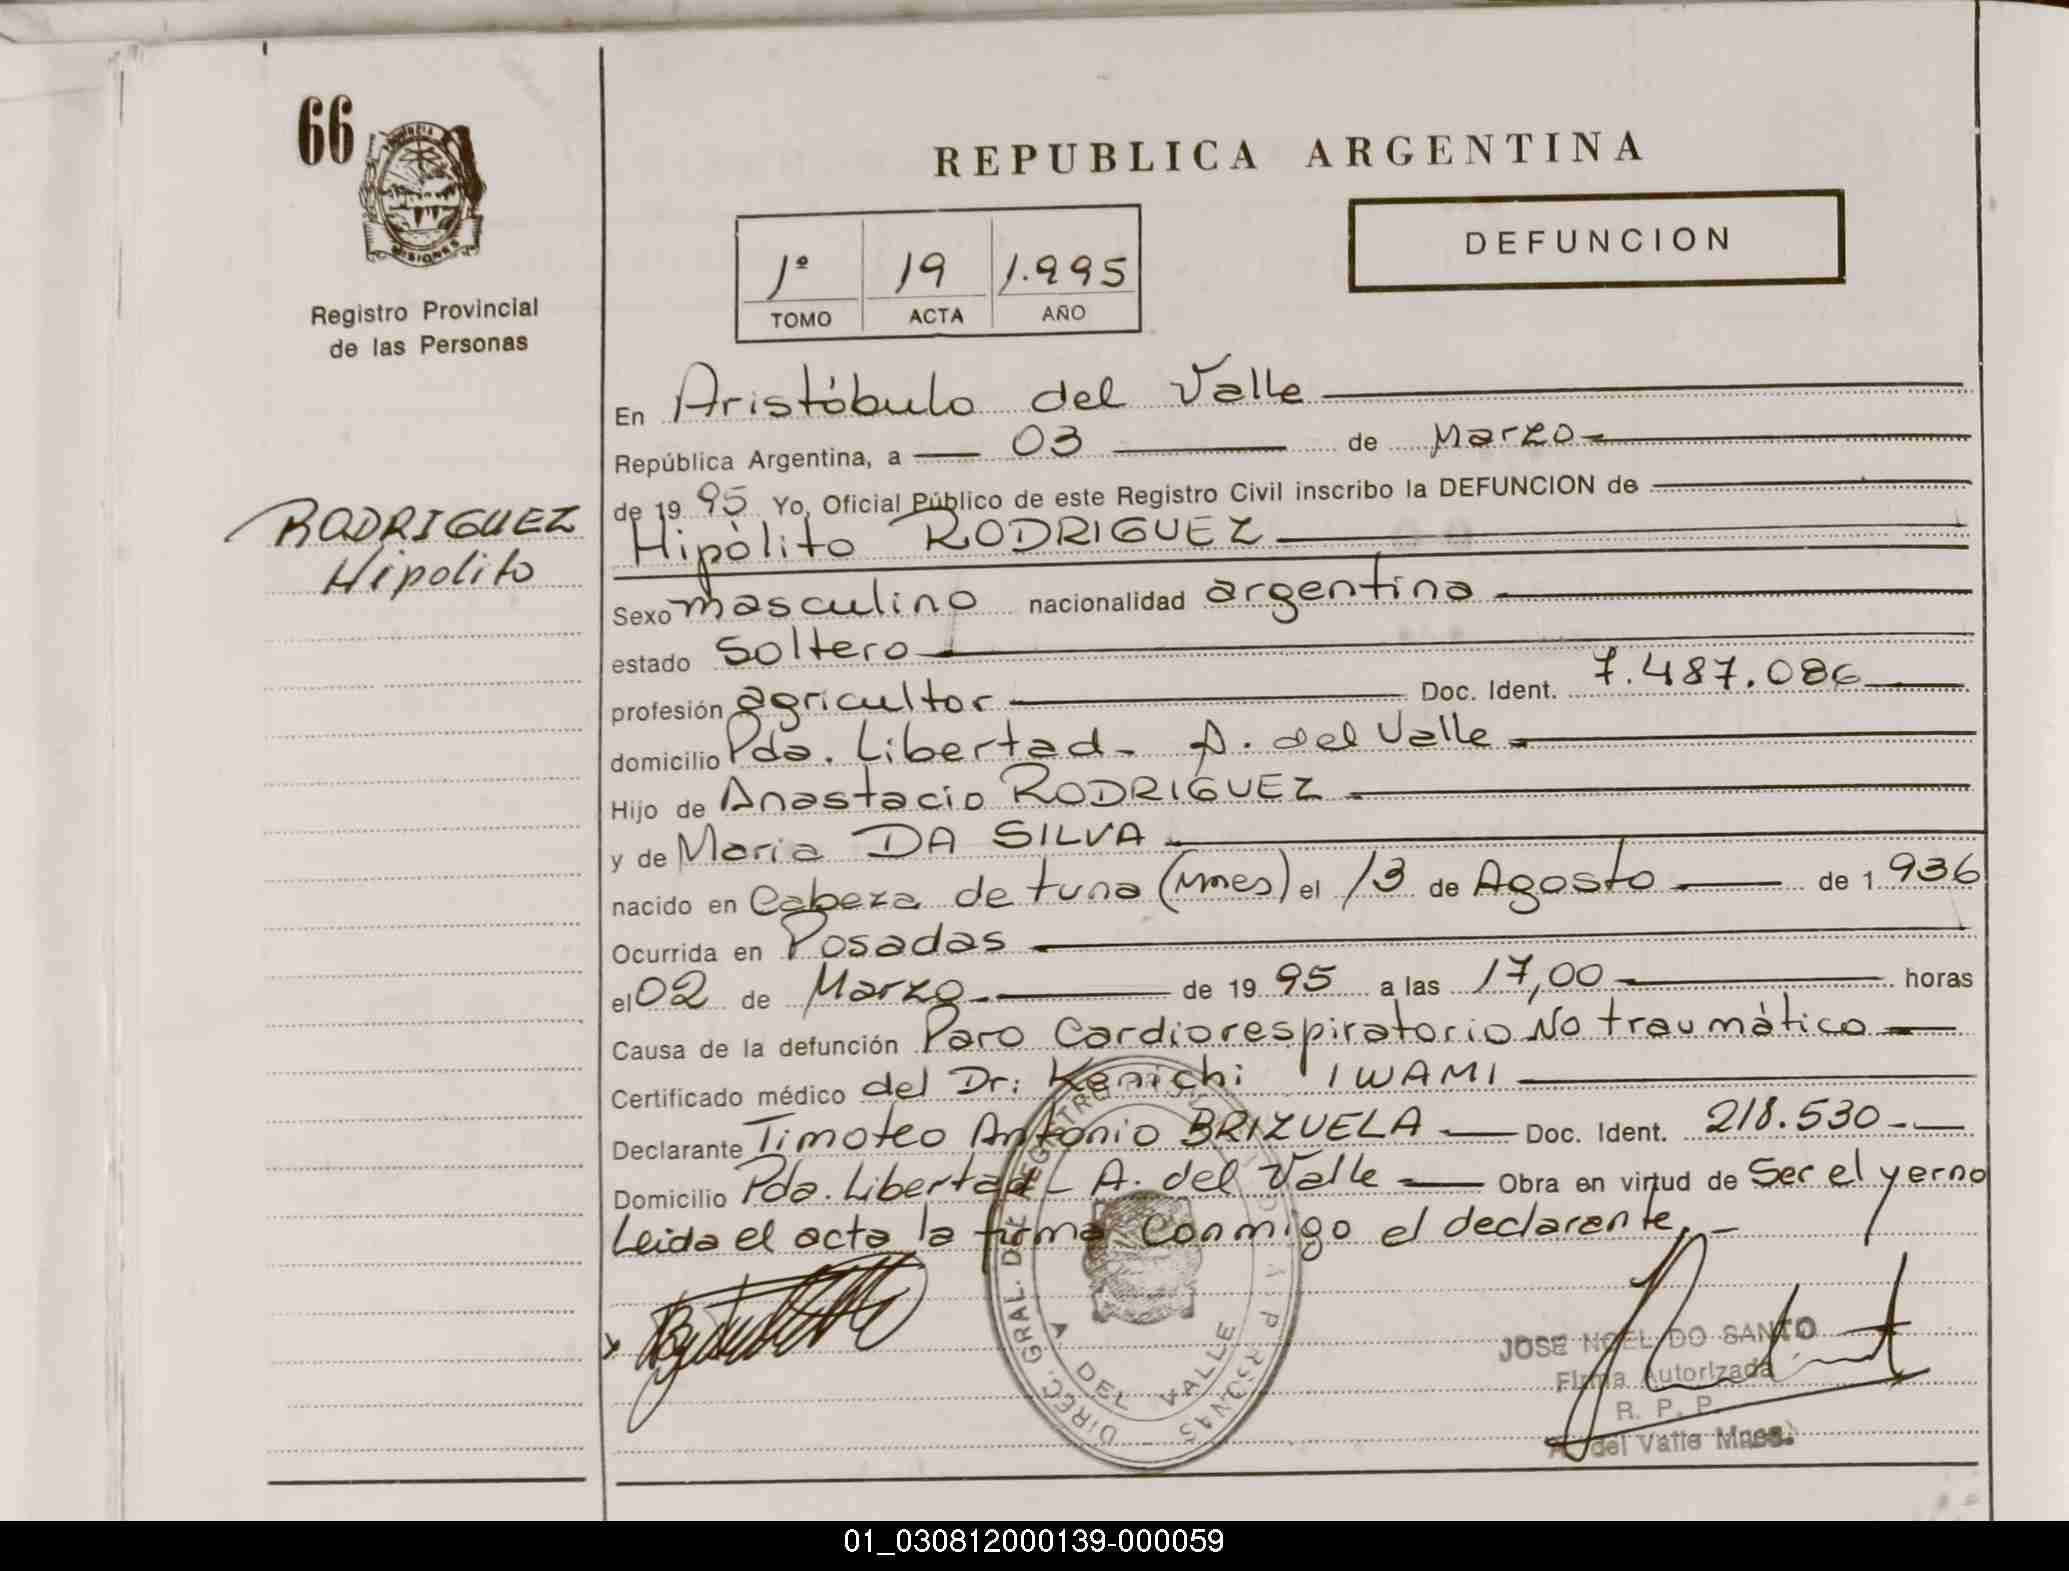 66
PROVINCIA
MISIONES
Registro Provincial
de las Personas
RODRIGUEZ
Hipolito
REPUBLICA ARGENTINA
DEFUNCION
1º 19 1.995
TOMO ACTA AÑO
En Aristóbulo del Valle
República Argentina, a 03 de Marzo
de 1995 Yo, Oficial Público de este Registro Civil inscribo la DEFUNCION de
Hipólito RODRIGUEZ
Sexo masculino nacionalidad argentina
estado soltero
profesión agricultor Doc. Ident. 7.487.086
domicilio Pda. Libertad - A. del Valle
Hijo de Anastacio RODRIGUEZ
y de Maria DA SILVA
nacido en Cabeza de tuna (Mnes) el 13 de Agosto de 1936
Ocurrida en Posadas
el 02 de Marzo de 1995 a las 17,00 horas
Causa de la defunción Paro Cardiorespiratorio No traumático
Certificado médico del Dr: Kenichi IWAMI
Declarante Timoteo Antonio BRIZUELA Doc. Ident. 218.530
Domicilio Pda. Libertad - A. del Valle Obra en virtud de Ser el yerno
Leida el acta la firma conmigo el declarante.
DIREC. GRAL. DEL REGISTRO
A DEL VALLE
JOSE NOEL DO SANTO
Firma Autorizada
R. P. P.
A. del Valle Mnes.
01_030812000139-000059